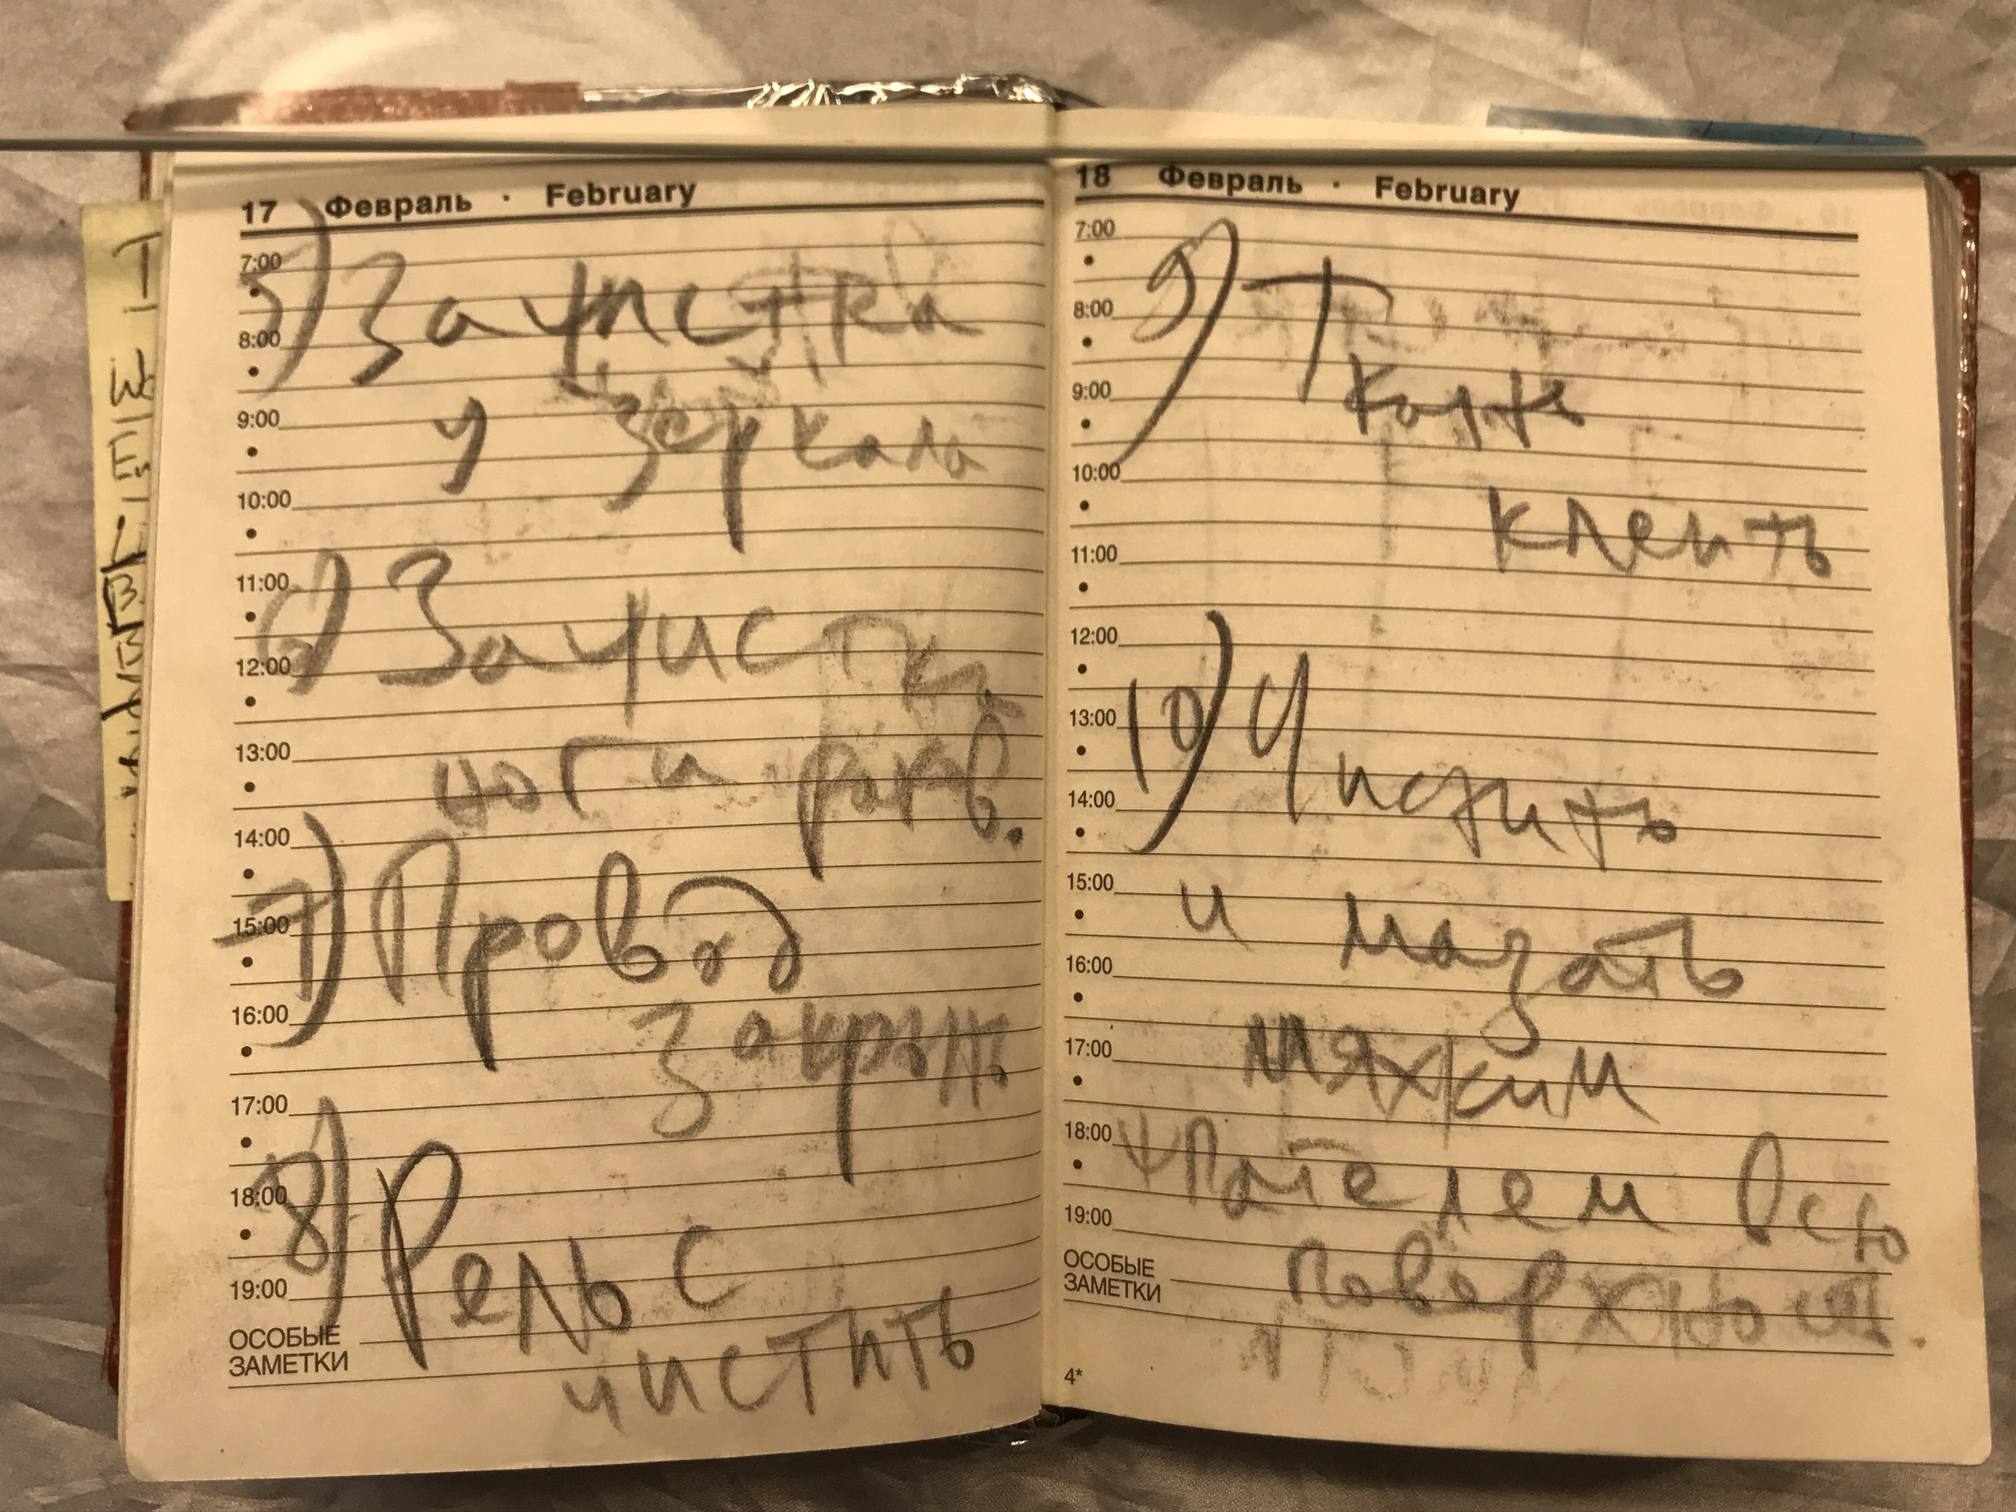 17 Февраль · February
7:00
8:00
9:00
10:00
11:00
12:00
13:00
14:00
15:00
16:00
17:00
18:00
19:00
ОСОБЫЕ
ЗАМЕТКИ
5) Зачистка
у зеркала
6) Зачистка
ноги раков.
7) Провод
закрыть
8) Рельс
чистить
18 Февраль · February
7:00
8:00
9:00
10:00
11:00
12:00
13:00
14:00
15:00
16:00
17:00
18:00
19:00
ОСОБЫЕ
ЗАМЕТКИ
4*
9) Т
клеить
10) Чистить
и мазать
мяхким
шпателем всю
поверхност.